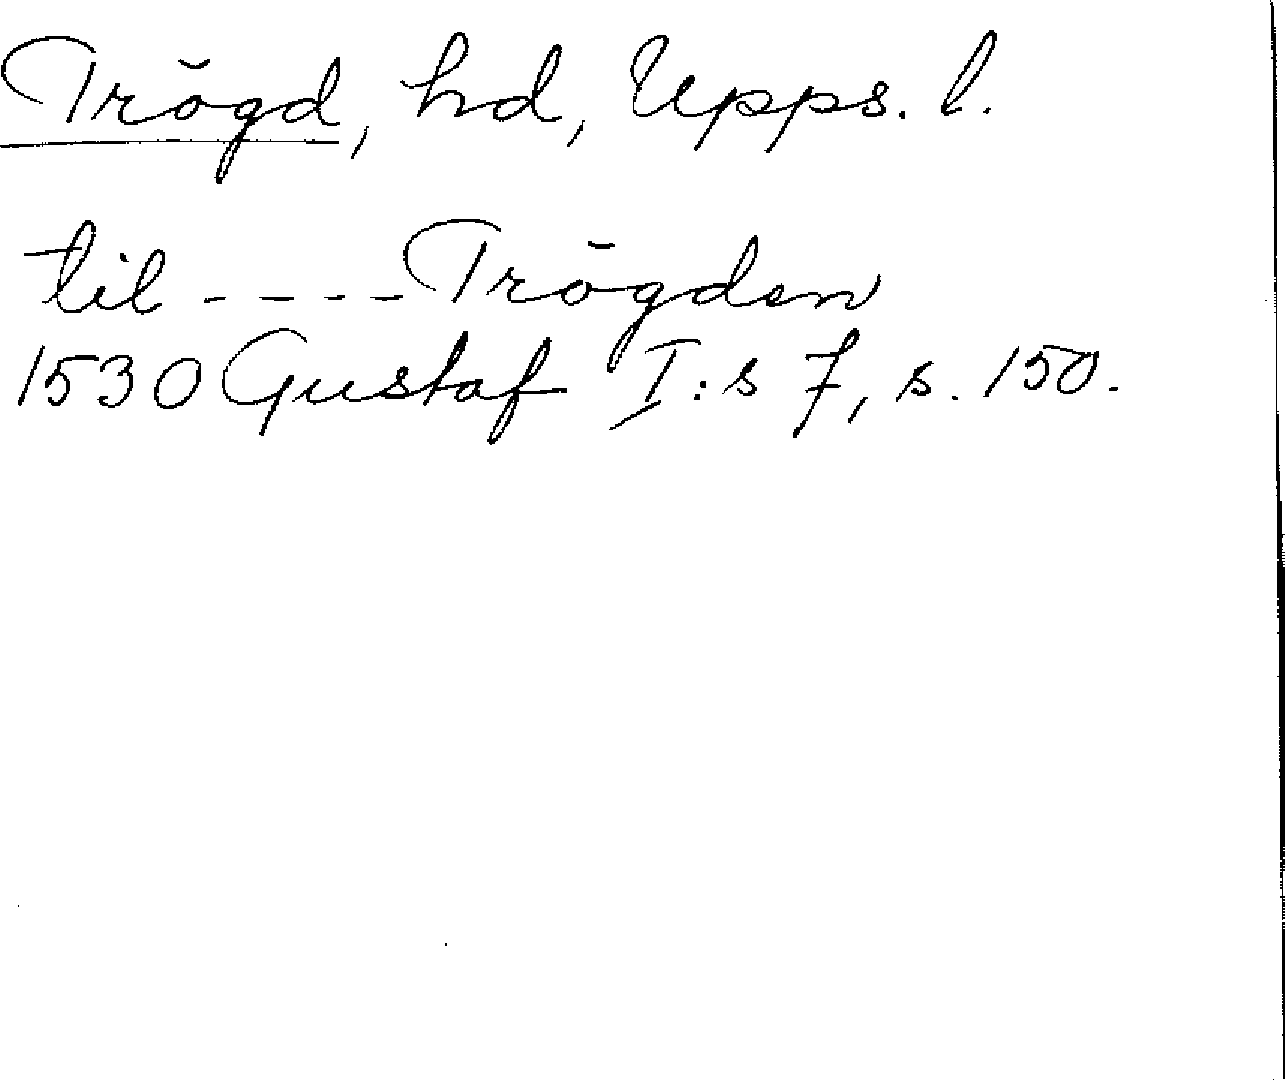 Trögd, hd, Upps. l.
til ---- Trögden
1530 Gustaf I:s 7, s. 150.